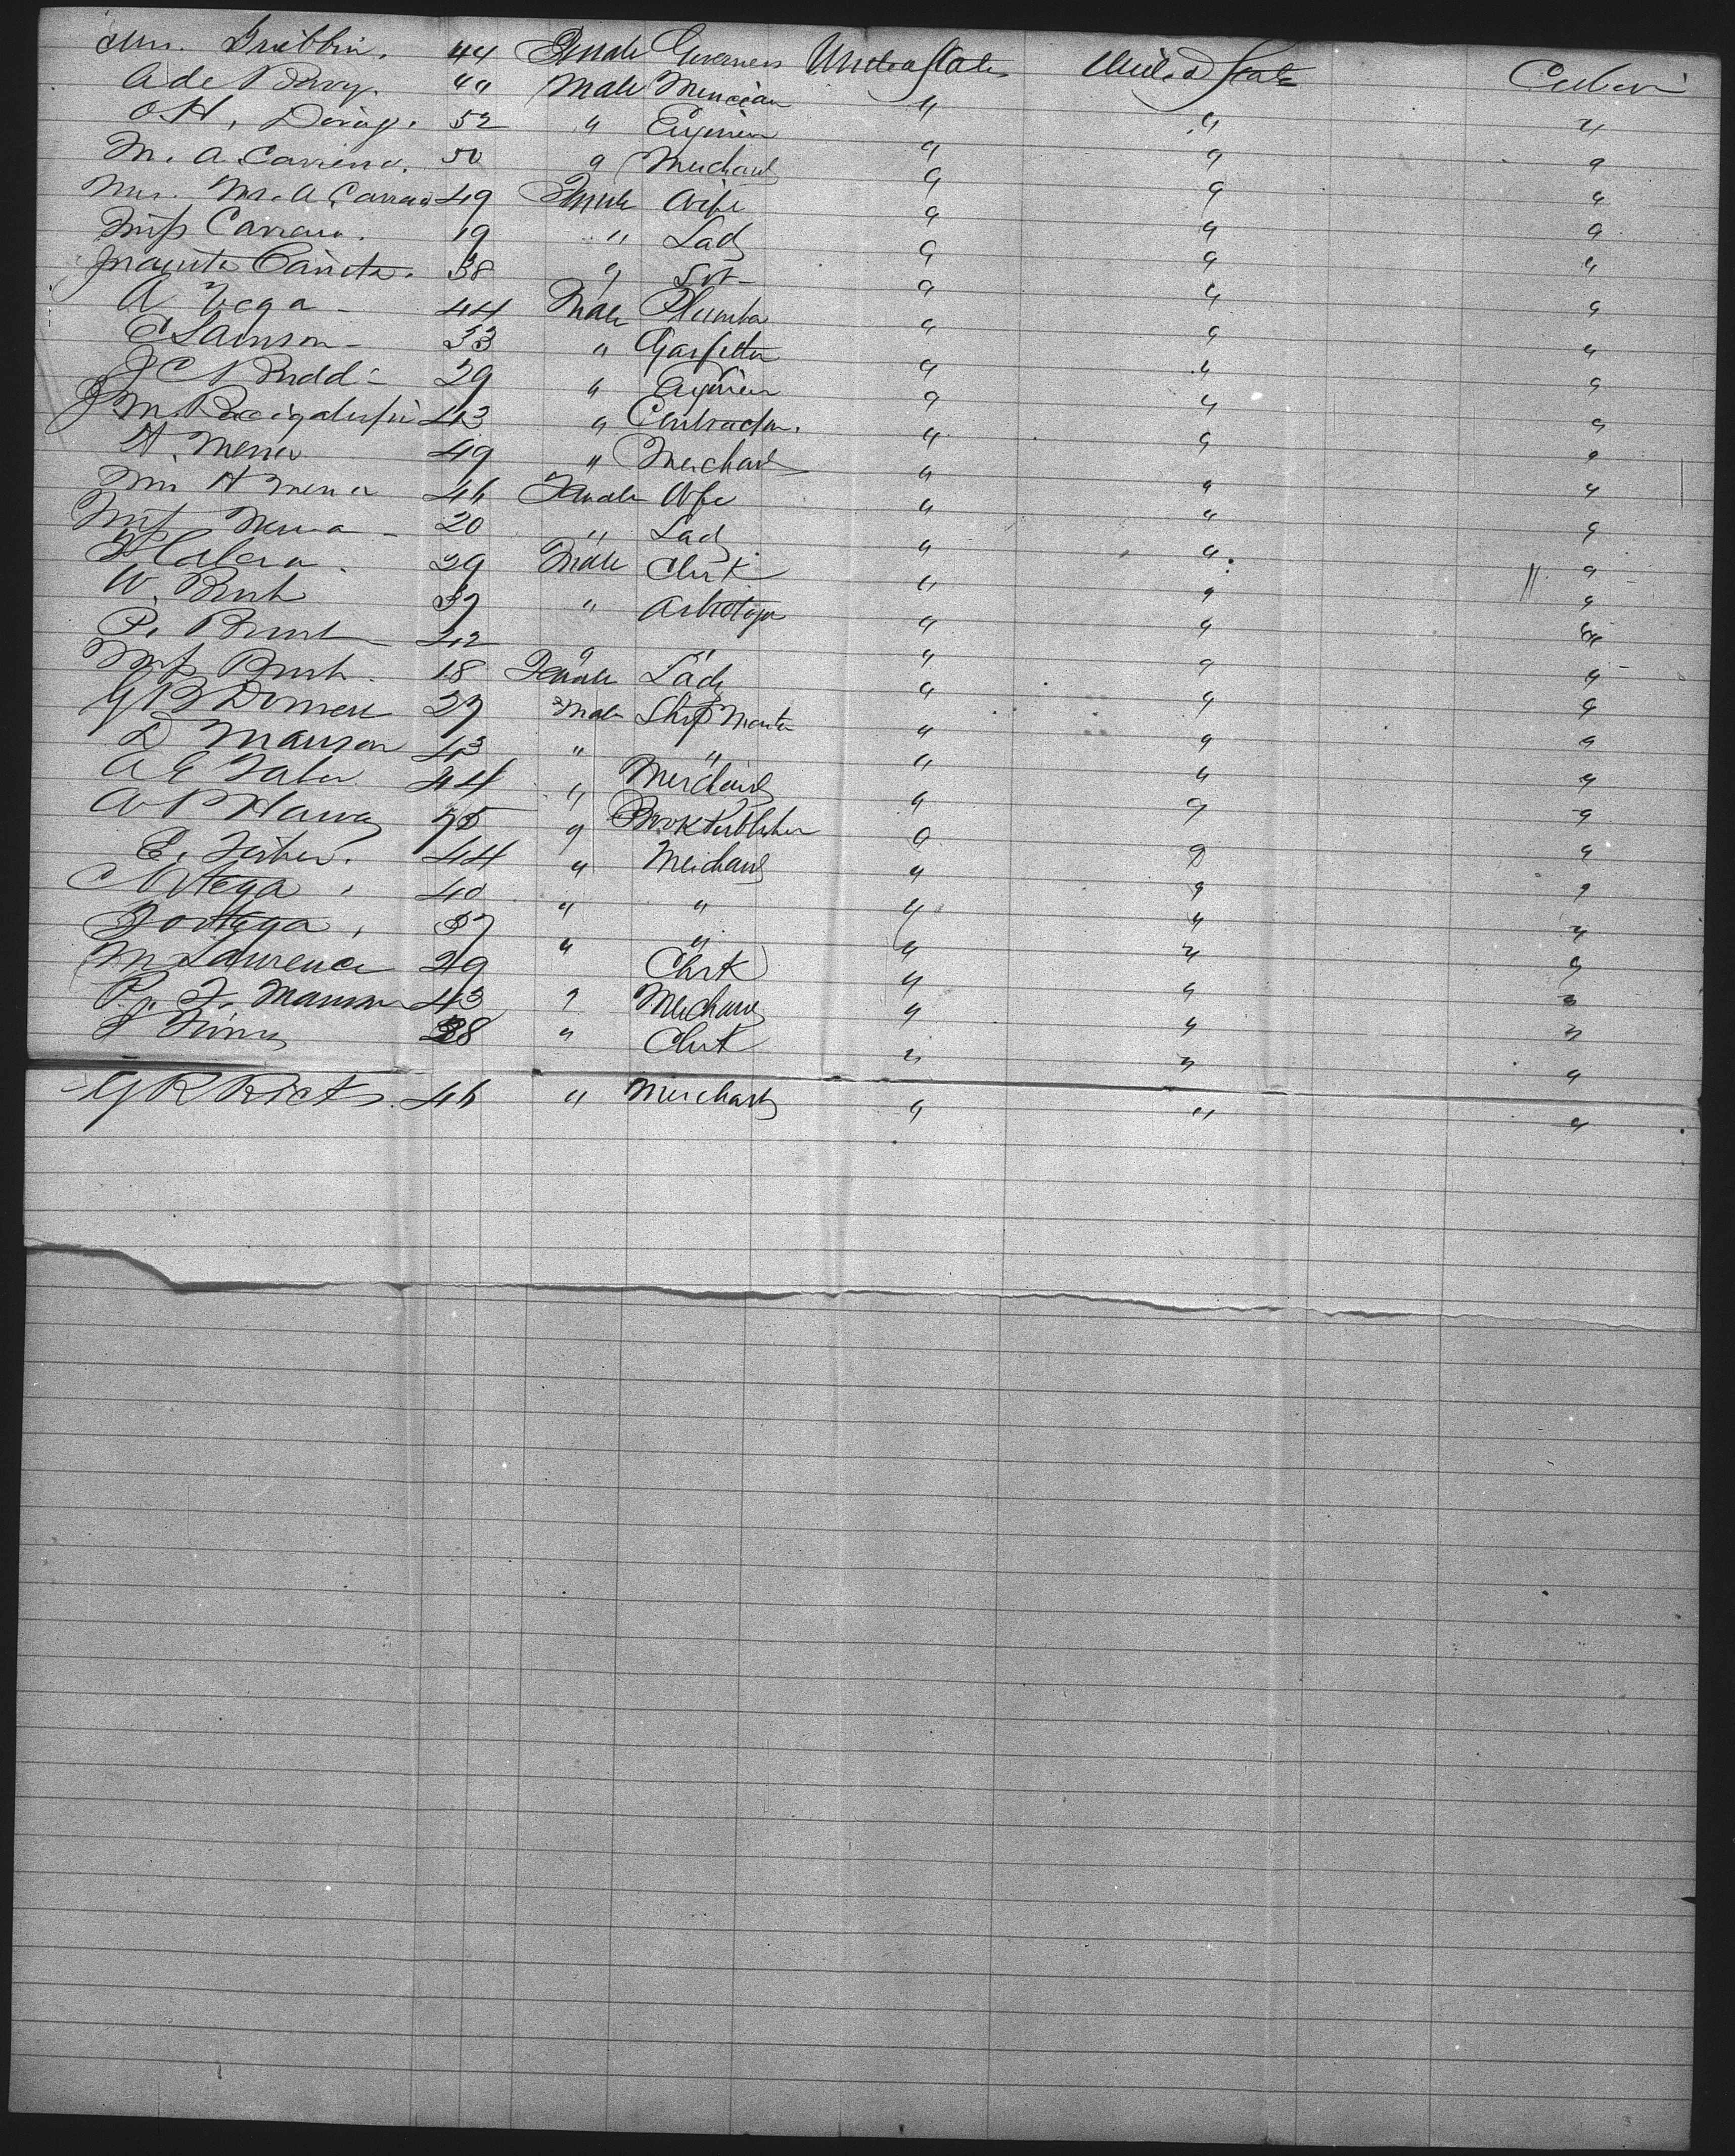 Mrs. Gribbin. 44 Female Governess United States United States Cabin
A de Barry. 44 Male Musician " " "
O H. Doring. 52 " Engineer " " "
M. A. Carrera. 50 " Merchant " " "
Mrs. M. A. Carrera 49 Female Wife " " "
Miss Carrera. 19 " Lady " " "
38 " Svt - " " "
A Vega - 44 Male Plumber " " "
C Samson - 33 " Gasfitter " " "
J C Budd - 29 " Engineer " " "
J M Bacigalupi 43 " Contractor. " " "
A. Mena 49 " Merchant " " "
Mrs A Mena 46 Female Wife " " "
Miss Mena - 20 " Lady " " "
29 Male Clerk " " "
W. Brush 37 " " " "
P. Brush 22 " " " " "
Miss Brush. 18 Female Lady " " "
G B 27 Male Ship Master " " "
D Manson 43 " " " " "
A G Faber 44 " Merchant " " "
75 " Book Publisher " " "
E. Fisher. 44 " Merchant " " "
C Ortega. 40 " " " " "
F Ortega, 37 " " " " "
M Lawrence 29 " Clerk " " "
P. F. Manson 43 " Merchant " " "
38 " Clerk " " "
G R Ricts. 46 " Merchant " " "